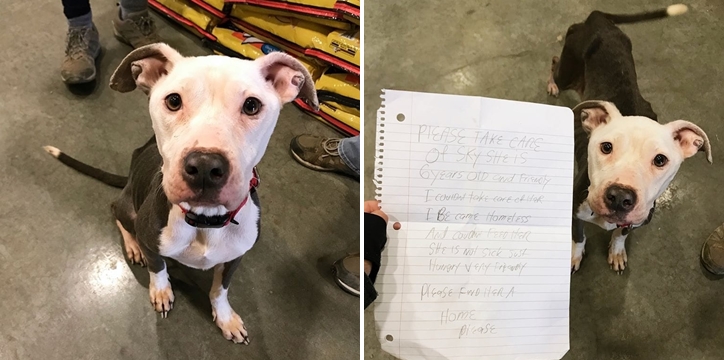 PLEASE TAKE CARE
Of SKY SHE IS
6 years OLD and friendly
I couldnt take care of Her
I BE came Homeless
And
She is not sick Just
Hungry Very friendly
Please Find Her A
Home
Please